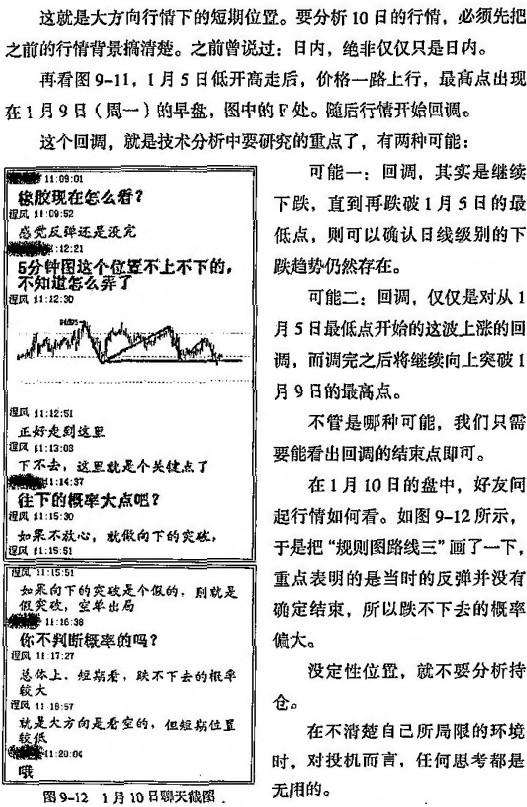 这就是大方向行情下的短期位置。要分析10日的行情，必须先把
之前的行情背景搞清楚。之前曾说过：日内，绝非仅仅只是日内。
再看图9-11，1月5日低开高走后，价格一路上行，最高点出现
在1月9日（周一）的早盘，图中的F处。随后行情开始回调。
这个回调，就是技术分析中要研究的重点了，有两种可能：
11:09:01
橡胶现在怎么看？
11:09:52
感觉反弹还是没完
11:12:21
5分钟图这个位置不上不下的，
不知道怎么弄了
11:12:30
11:12:51
正好走到这里
11:13:03
下不去，这里就是个关键点了
11:14:37
往下的概率大点吧？
11:15:30
如果不放心，就做向下的突破，
11:15:51
11:15:51
如果向下的突破是个假的，则就是
假突破，空单出局
11:16:38
你不判断概率的吗？
11:17:27
总体上，短期看，跌不下去的概率
较大
11:18:57
就是大方向是看空的，但短期位置
较低
11:20:04
哦
图9-12 1月10日聊天截图
可能一：回调，其实是继续
下跌，直到再跌破1月5日的最
低点，则可以确认日线级别的下
跌趋势仍然存在。
可能二：回调，仅仅是对从1
月5日最低点开始的这波上涨的回
调，而调完之后将继续向上突破1
月9日的最高点。
不管是哪种可能，我们只需
要能看出回调的结束点即可。
在1月10日的盘中，好友问
起行情如何看。如图9-12所示，
于是把“规则图路线三”画了一下，
重点表明的是当时的反弹并没有
确定结束，所以跌不下去的概率
偏大。
没定性位置，就不要分析持
仓。
在不清楚自己所局限的环境
时，对投机而言，任何思考都是
无用的。